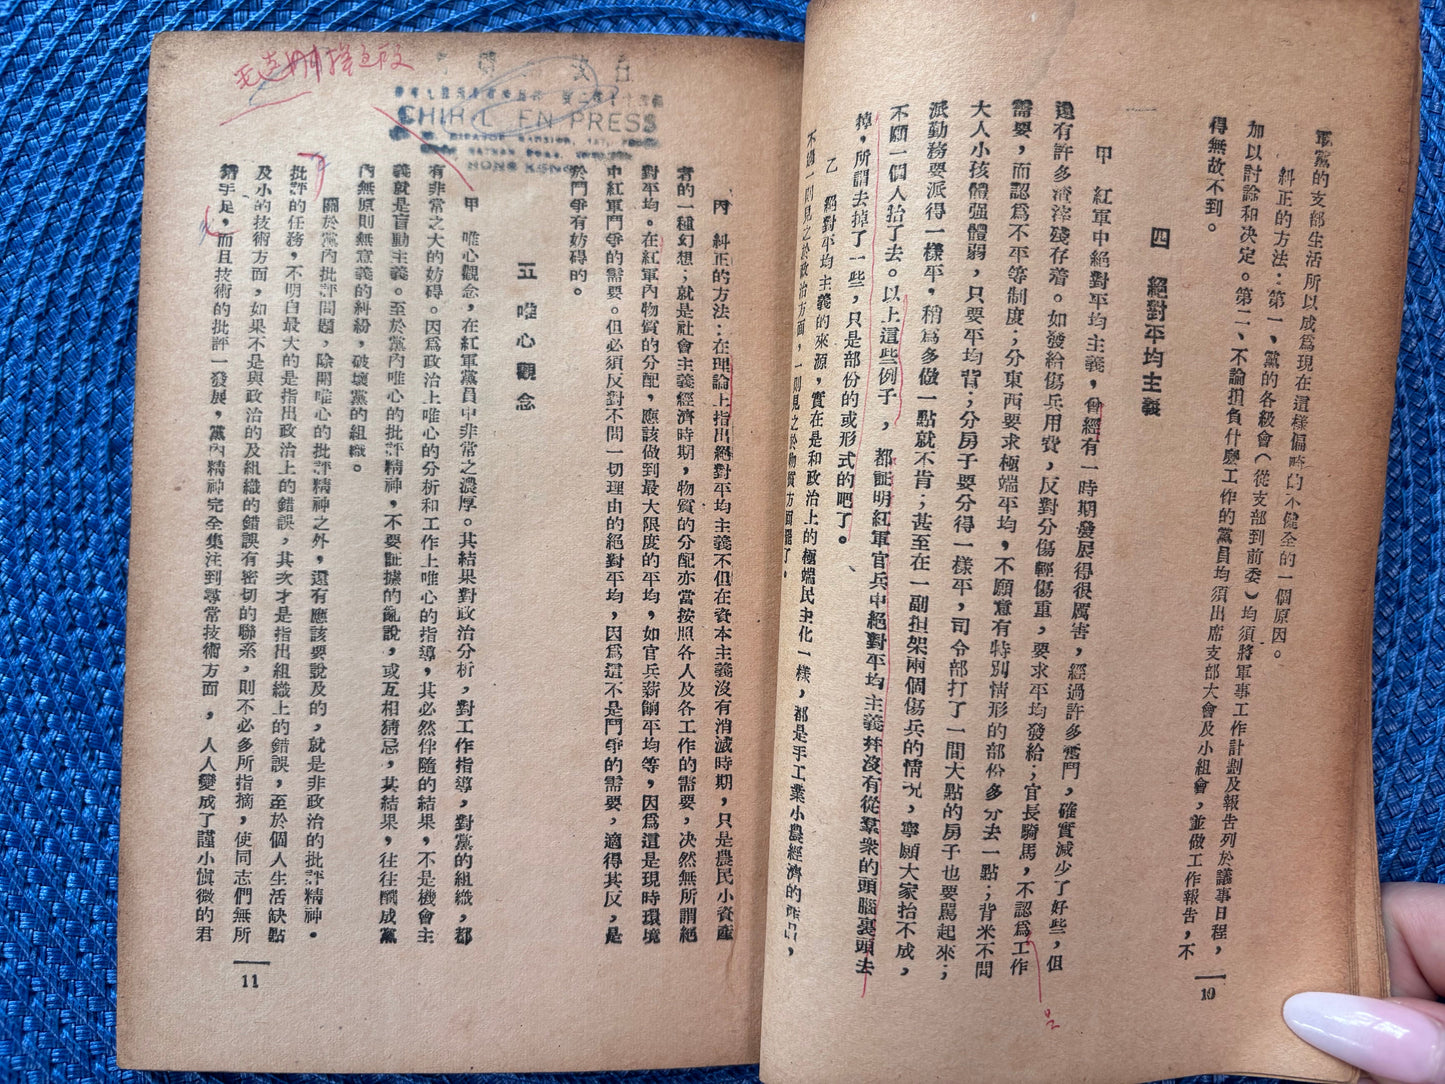 軍黨的支部生活所以成爲現在這樣偏畸的不健全的一個原因。
糾正的方法：第一、黨的各級會（從支部到前委）均須將軍事工作計劃及報告列於議事日程，
加以討論和决定。第二、不論担負什麽工作的黨員均須出席支部大會及小組會，並做工作報告，不
得無故不到。
四 絕對平均主義
甲 紅軍中絕對平均主義，曾經有一時期發展得很厲害，經過許多奮鬥，確實減少了好些，但
還有許多渣滓殘存着。如發給傷兵用費，反對分傷輕傷重，要求平均發給；官長騎馬，不認爲工作
需要，而認爲不平等制度；分東西要求極端平均，不願意有特別情形的部份多分去一點；背米不問
大人小孩體强體弱，只要平均背；分房子要分得一樣平，司令部打了一間大點的房子也要罵起來；
派勤務要派得一樣平，稍爲多做一點就不肯；甚至在一副担架兩個傷兵的情况，寧願大家抬不成，
不願一個人抬了去。以上這些例子，都証明紅軍官兵中絕對平均主義幷沒有從羣衆的頭腦裏頭去
掉，所謂去掉了一些，只是部份的或形式的吧了。
乙 絕對平均主義的來源，實在是和政治上的極端民主化一樣，都是手工業小農經濟的產品，
不過一則見之於政治方面，一則見之於物質方面罷了。
10
CHIH EN PRESS
MIRADOR MANSION, 1ST,
NATHAN ROAD,
HONG KONG
丙 糾正的方法：在理論上指出絕對平均主義不但在資本主義沒有消滅時期，只是農民小資產
者的一種幻想；就是社會主義經濟時期，物質的分配亦當按照各人及各工作的需要，决然無所謂絕
對平均。在紅軍內物質的分配，應該做到最大限度的平均，如官兵薪餉平均等，因爲這是現時環境
中紅軍鬥爭的需要。但必須反對不問一切理由的絕對平均，因爲這不是鬥爭的需要，適得其反，是
於鬥爭有妨碍的。
五 唯心觀念
甲 唯心觀念，在紅軍黨員中非常之濃厚。其結果對政治分析，對工作指導，對黨的組織，都
有非常之大的妨碍。因爲政治上唯心的分析和工作上唯心的指導，其必然伴隨的結果，不是機會主
義就是盲動主義。至於黨內唯心的批評精神，不要証據的亂說，或互相猜忌，其結果，往往釀成黨
內無原則無意義的糾紛，破壞黨的組織。
關於黨內批評問題，除開唯心的批評精神之外，還有應該要說及的，就是非政治的批評精神。
批評的任務，不明白最大的是指出政治上的錯誤，其次才是指出組織上的錯誤，至於個人生活缺點
及小的技術方面，如果不是與政治的及組織的錯誤有密切的聯系，則不必多所指摘，使同志們無所
錯手足，而且技術的批評一發展，黨內精神完全集注到尋常技術方面，人人變成了謹小愼微的君
11